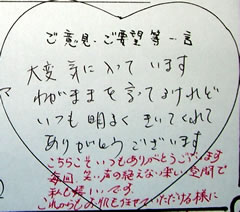 ご意見・ご要望等一言
大変気に入って います
わがままを言ってるけれど
いつも明るく きいてくれて
ありがとうございます
こちらこそいつもありがとうございます
毎回、笑い声の絶えない楽しい空間で
私も嬉しいです。
これからもお肌を任せていただける様に